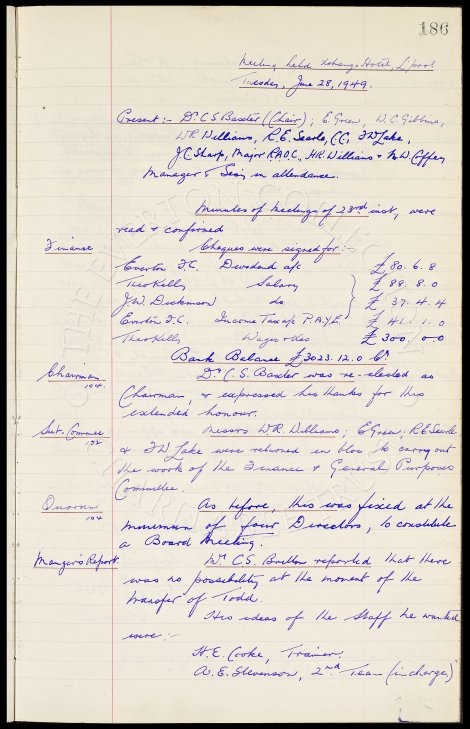 186
Meeting held Exchange Hotel, L'pool
Tuesday, June 28, 1949.
Present:- Dr C S Baxter (Chair); E. Green, W. C. Gibbins,
W R Williams, R. E. Searle, CC, F W Lake,
J C Sharp, Major R.A.O.C., H R Williams & N. W. Coffey
Manager & Secy, in attendance.
Minutes of Meetings of 23rd inst, were
read & confirmed
Finance Cheques were signed for:
Everton F.C. Dividend a/c £80. 6. 8
Theo Kelly Salary £88. 8. 0
J. W. Dickinson do £37. 4. 4
Everton F.C. Income Tax a/c P.A.Y.E. £41. 1. 0
Theo Kelly Wages & Exes £300. 0 0
Bank Balance £3023. 12. 0 Cr.
Chairman Dr. C. S. Baxter was re-elected as
104. Chairman, & expressed his thanks for this
extended honour.
Sub-Commee Messrs W R Williams; E Green, R E Searle
102 & F W Lake were returned en bloc to carry out
the work of the Finance & General Purposes
Committee.
Quorum As before, this was fixed at the
104 minimum of four Directors, to constitute
a Board Meeting.
Manger's Report. Mr C S. Britton reported that there
was no possibility at the moment of the
transfer of Todd.
His ideas of the Staff he wanted
were:-
H. E. Cooke, Trainer.
A. E. Stevenson, 2nd Team (in charge)
THE EVERTON COLLECTION